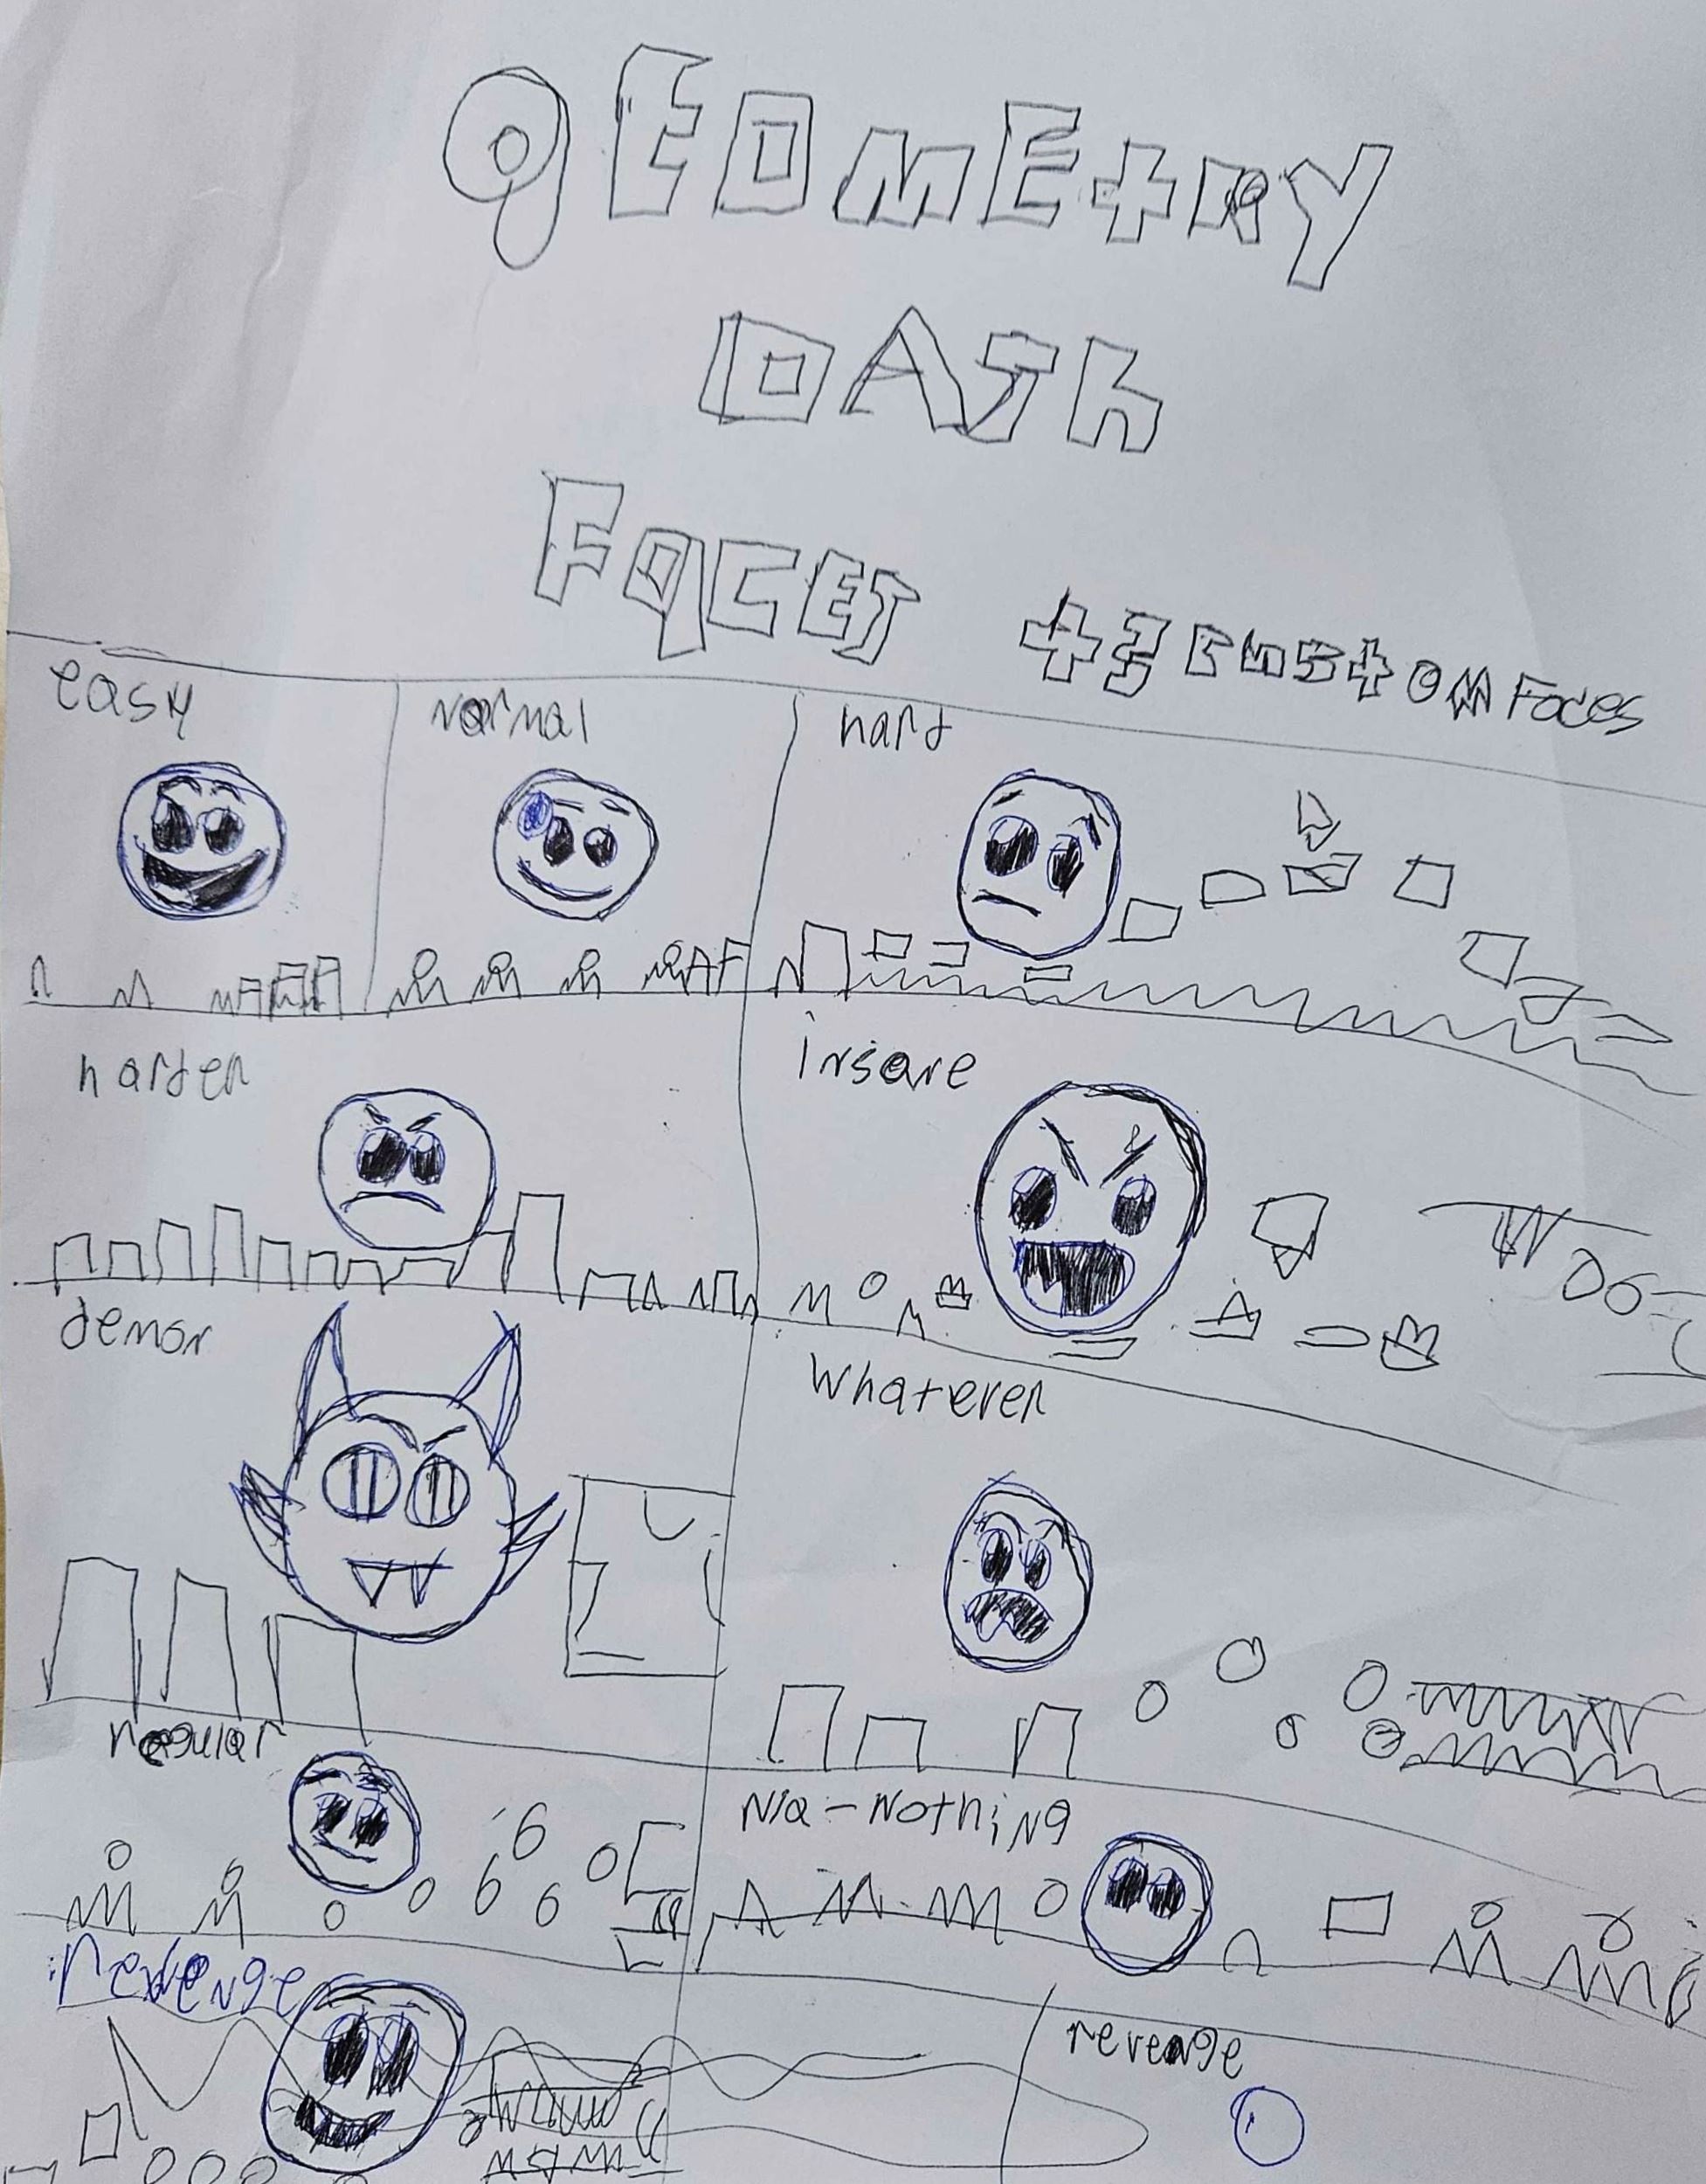 gEOMEtRY
DASh
FaCES +3 CuStOM Faces
easy
Normal
hard
harder
insane
demon
Whatever
regular
N/a - Nothing
revenge
revenge